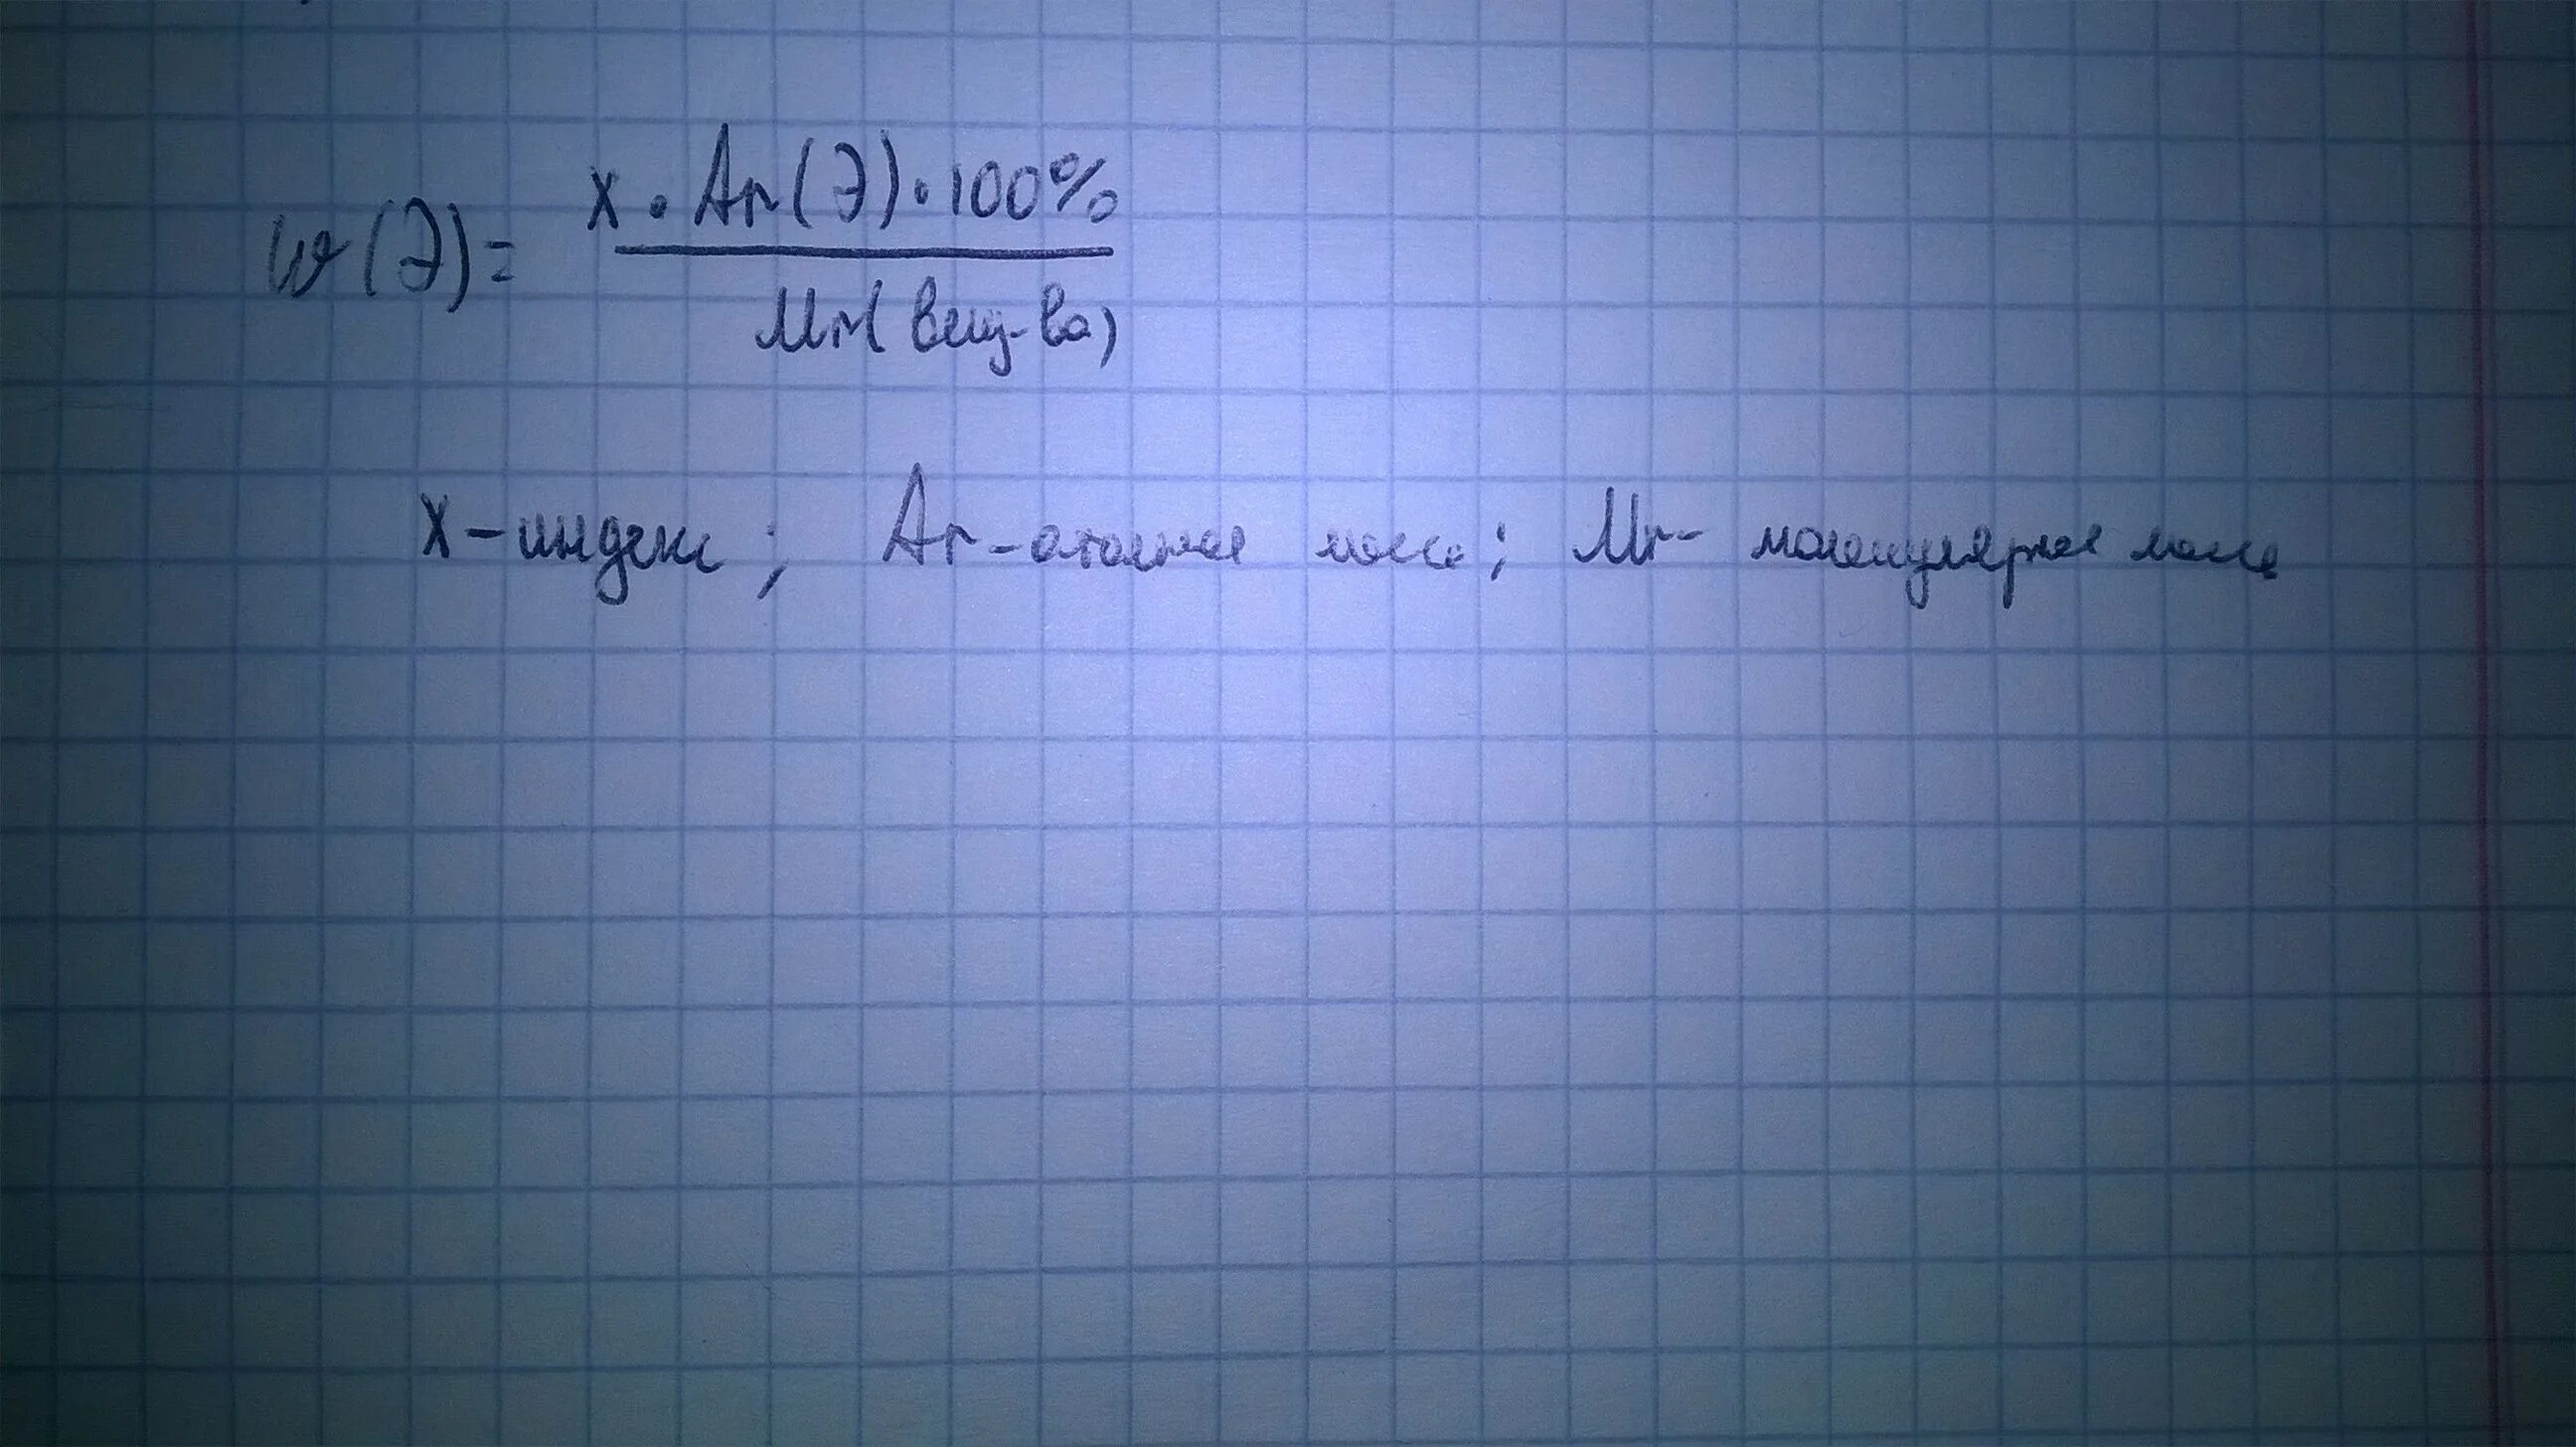 w(Э)= x · Ar(Э) · 100% / Mr(вещ-ва)
x – индекс; Ar – атомная масса; Mr – молекулярная масса